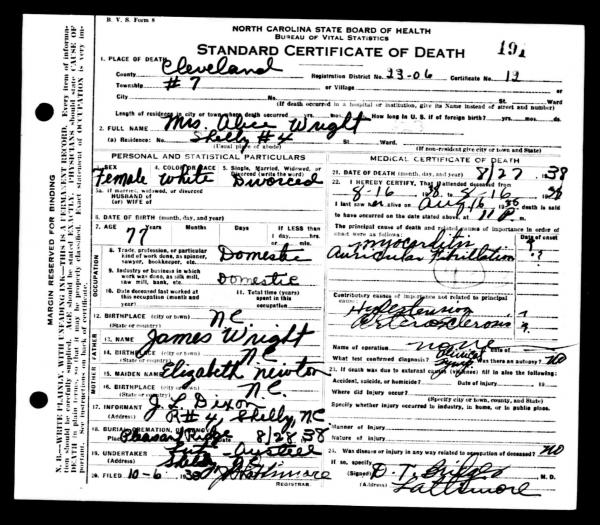 B. V. S. Form 8
NORTH CAROLINA STATE BOARD OF HEALTH
BUREAU OF VITAL STATISTICS
STANDARD CERTIFICATE OF DEATH 191
MARGIN RESERVED FOR BINDING
1. PLACE OF DEATH
County Cleveland Registration District No. 23-06 Certificate No. 12
Township #7 or Village
City No. St. Ward
(If death occurred in a hospital or institution, give its Name instead of street and number)
Length of residence in city or town where death occurred yrs. mos. ds. How long in U. S. if of foreign birth? yrs. mos. ds.
2. FULL NAME Mrs. Alice Wright
(a) Residence: No. Shelby #4 St. Ward
(Usual place of abode) (If non-resident give city or town and State)
PERSONAL AND STATISTICAL PARTICULARS
3. SEX 4. COLOR OR RACE 5. Single, Married, Widowed, or Divorced (write the word)
Female White Divorced
5a. If married, widowed, or divorced
HUSBAND of
(or) WIFE of
6. DATE OF BIRTH (month, day, and year)
7. AGE 77 Years Months Days If LESS than 1 day, hrs. or min.
OCCUPATION
8. Trade, profession, or particular kind of work done, as spinner, sawyer, bookkeeper, etc. Domestic
9. Industry or business in which work was done, as silk mill, saw mill, bank, etc. Domestic
10. Date deceased last worked at this occupation (month and year) 11. Total time (years) spent in this occupation
12. BIRTHPLACE (city or town) NC
(State or country)
FATHER
13. NAME James Wright
14. BIRTHPLACE (city or town) NC
(State or country)
MOTHER
15. MAIDEN NAME Elizabeth Newton
16. BIRTHPLACE (city or town) NC.
(State or country)
17. INFORMANT J. L. Dixon
(Address) R#4, Shelby, NC
18. BURIAL, CREMATION, OR REMOVAL
Place Pleasant Ridge Date 8/28 38
19. UNDERTAKER
(Address) Shelby
20. FILED 10-6 1938
REGISTRAR.
MEDICAL CERTIFICATE OF DEATH
21. DATE OF DEATH (month, day, and year) 8/27 1938
22. I HEREBY CERTIFY, That I attended deceased from
8-16 1938, to 8-16 1938
I last saw her alive on Aug 16 1938 death is said
to have occurred on the date stated above at 11 P m.
The principal cause of death and related causes of importance in order of onset were as follows: Date of onset
Myocarditis ?
Auricular Fibrillation ?
Contributory causes of importance not related to principal cause:
Hypertension ?
Arteriosclerosis ?
Name of operation none Date of
What test confirmed diagnosis? Clinical Was there an autopsy? No
23. If death was due to external causes (violence) fill in also the following:
Accident, suicide, or homicide? Date of injury 19
Where did injury occur?
(Specify city or town, county, and State)
Specify whether injury occurred in industry, in home, or in public place.
Manner of Injury
Nature of Injury
24. Was disease or injury in any way related to occupation of deceased? no
If so, specify
(Signed) M. D.
(Address) Lattimore